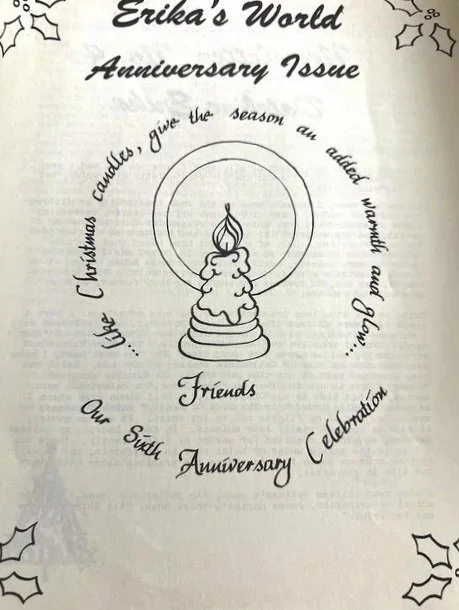 Erika's World
Anniversary Issue
...like Christmas candles, give the season an added warmth and glow...
Friends
Our Sixth Anniversary Celebration